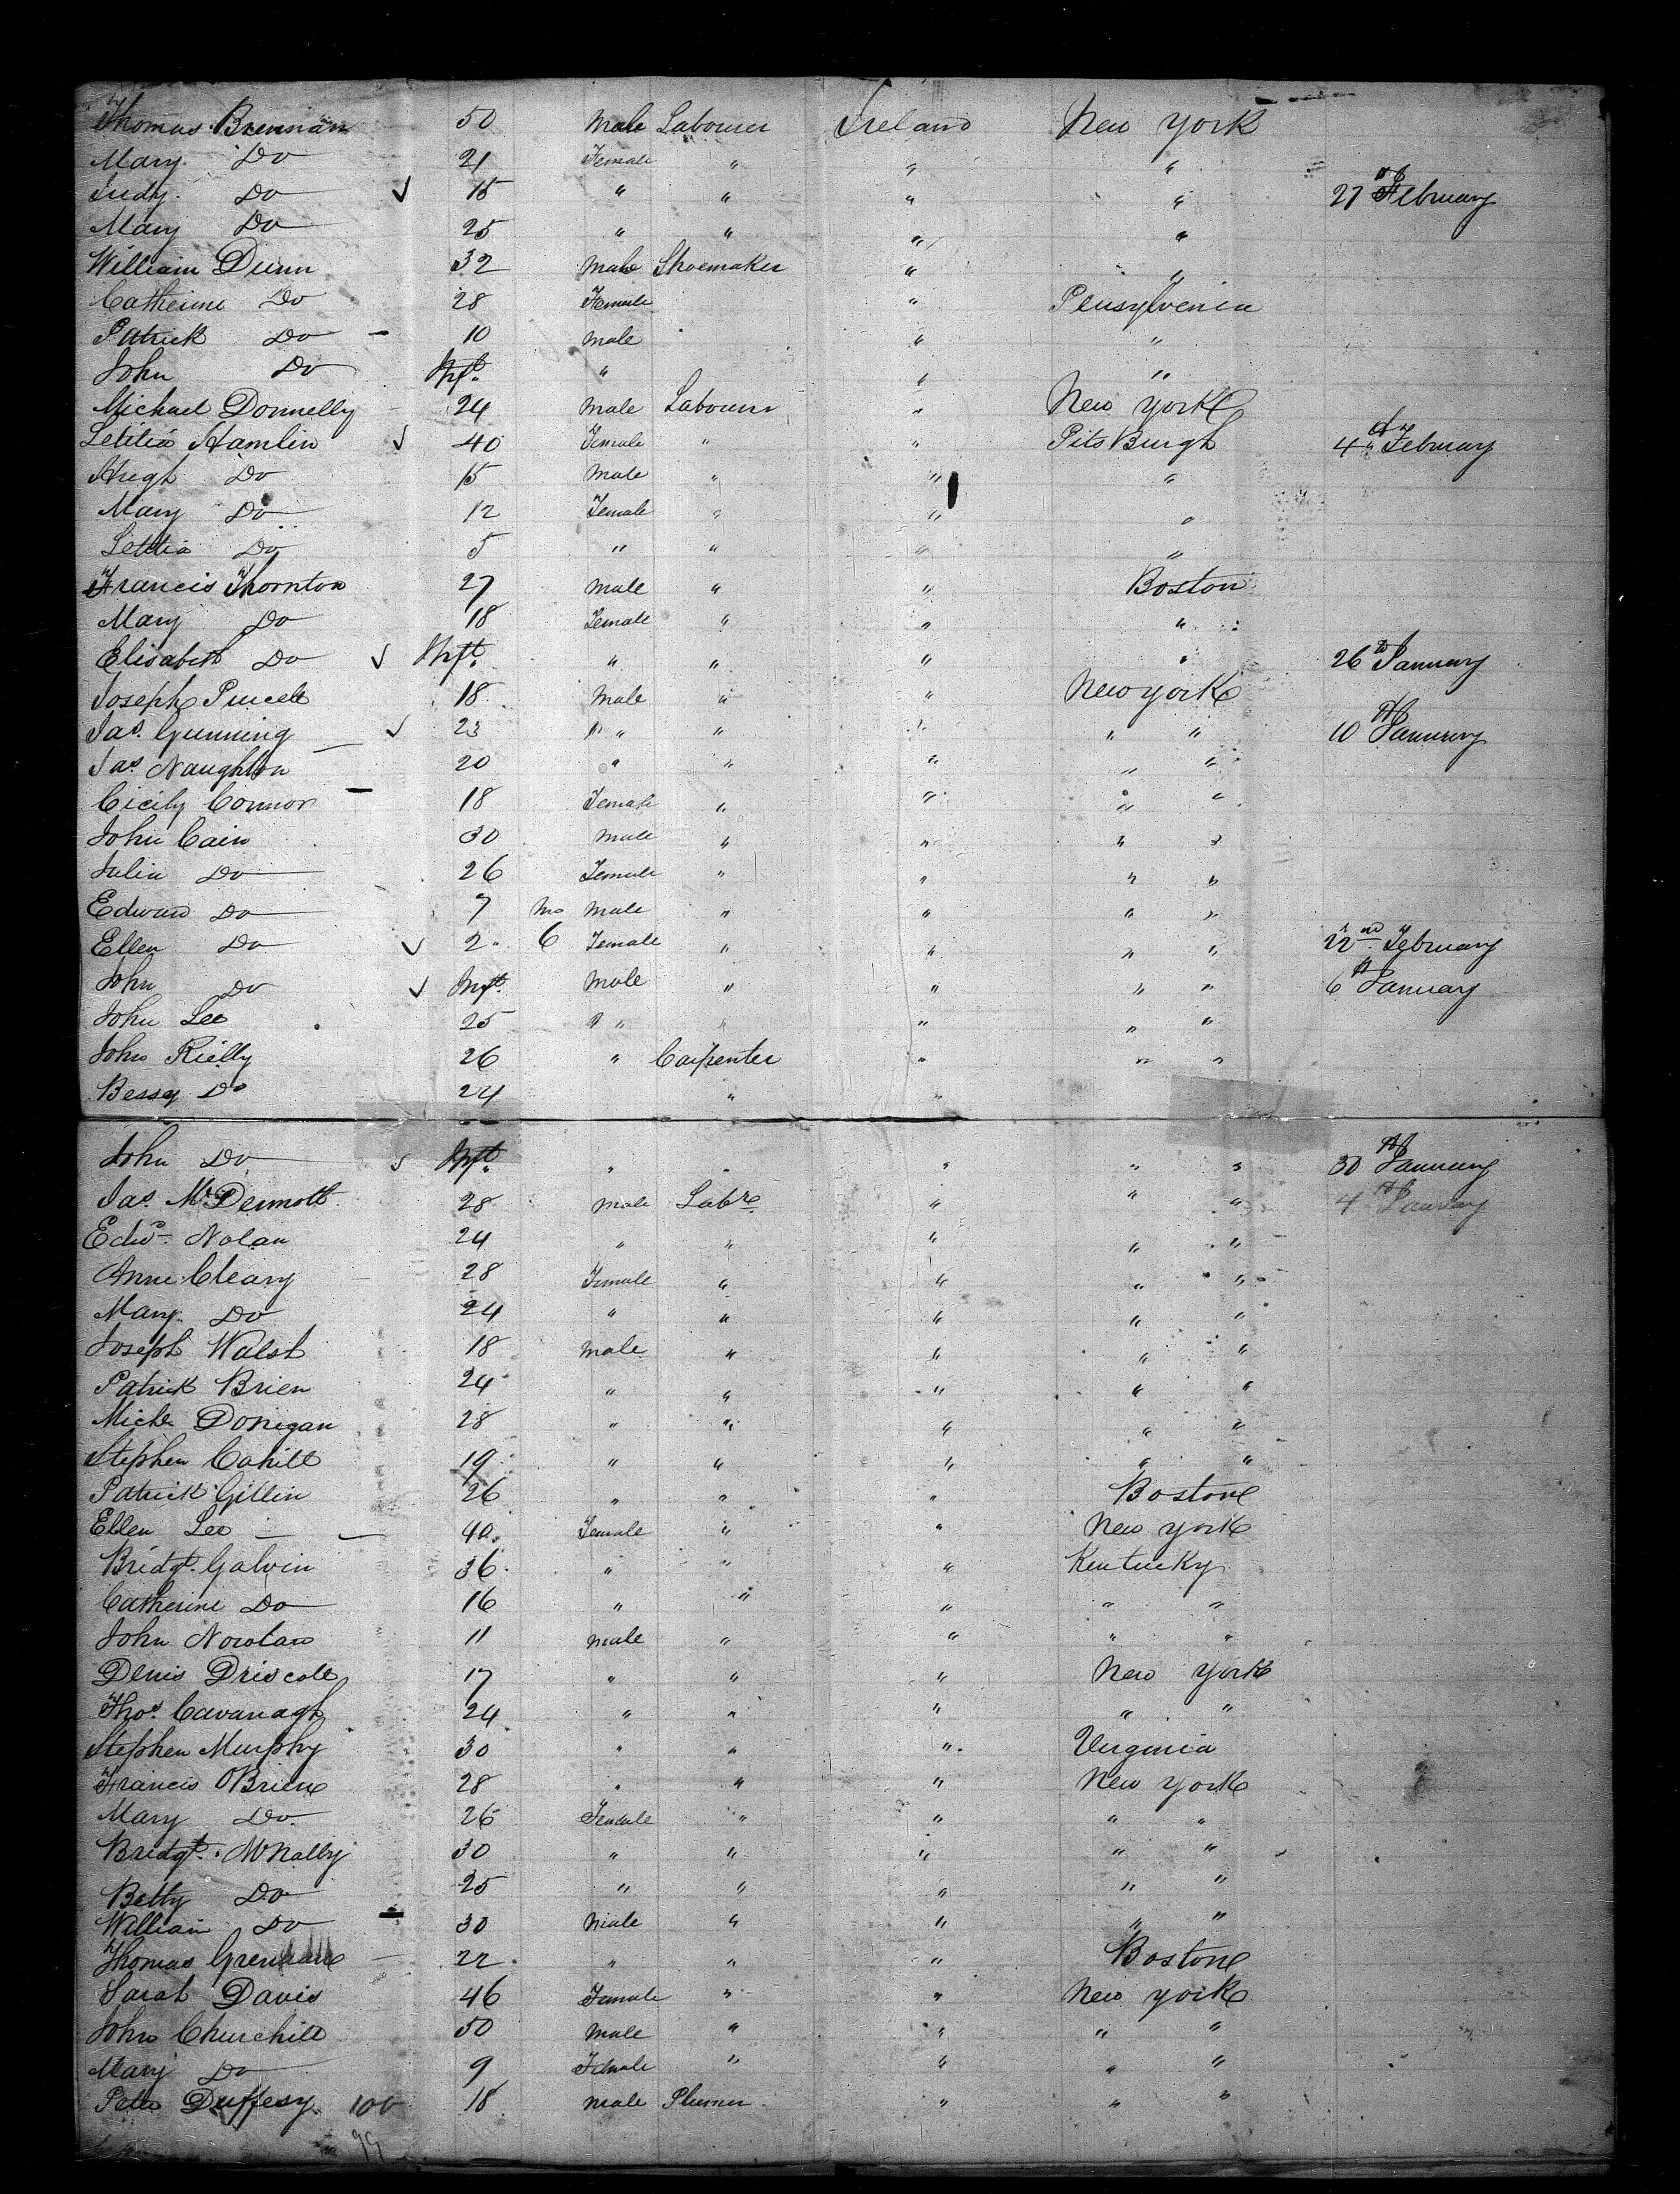 Thomas Brennan 50 Male Labourer Ireland New York
Mary Do 21 Female " " "
Judy Do ✓ 15 " " " " 27th February
Mary Do 25 " " " "
William Dunn 32 Male Shoemaker " "
Catherine Do 28 Female " Pensylvenia
Patrick Do - 10 Male " "
John Do Inft. " " "
Michael Donnelly 24 Male Labourer " New York
Letitia Hamlin ✓ 40 Female " " Pits Burgh 4th February
Hugh Do 15 Male " " "
Mary Do 12 Female " " "
Letitia Do 5 " " " "
Francis Thornton 27 Male " " Boston
Mary Do 18 Female " " "
Elisabeth Do ✓ Inft. " " " " 26th January
Joseph Purcell 18 Male " " New york
Jas. Gunning ✓ 23 " " " " " 10th January
Jas Naughton 20 " " " " "
Cicily Connor 18 Female " " " "
John Cain 30 Male " " " "
Julia Do 26 Female " " " "
Edward Do 7 Mo Male " " " "
Ellen Do ✓ 2 6 Female " " " " 22nd February
John Do ✓ Inft. Male " " " " 6th January
John Lee 25 " " " " "
John Rielly 26 " Carpenter " " "
Bessey Do 24 " "
John Do ✓ Inft. " " " " " 30th January
Jas. McDermott 28 Male Labre " " " 4th January
Edwd. Nolan 24 " " " " "
Anne Cleary 28 Female " " " "
Mary Do 24 " " " " "
Joseph Walsh 18 Male " " " "
Patrick Brien 24 " " " " "
Michl Donigan 28 " " " " "
Stephen Cahill 19 " " " " "
Patrick Gillin 26 " " " Boston
Ellen Lee 40 Female " " New york
Bridgt. Galvin 36 " " " Kentucky
Catherine Do 16 " " " " "
John Nowlan 11 Male " " " "
Denis Driscoll 17 " " " New York
Thos. Cavanagh 24 " " " " "
Stephen Murphy 30 " " " Verginia
Francis OBrien 28 " " " New york
Mary Do. 26 Female " " " "
Bridgt. McNally 30 " " " " "
Betty Do 25 " " " " "
William Do 30 Male " " " "
Thomas 22 " " " Boston
Sarah Davis 46 Female " " New york
John Churchill 50 Male " " " "
Mary Do 9 Female " " " "
Peter Duffesy 100 18 Male Plumer " " "
99